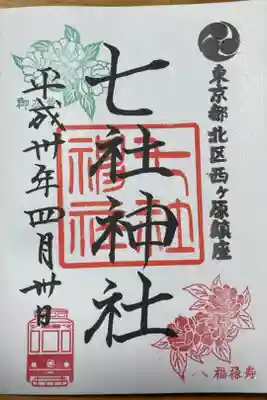 東京都北区西ヶ原鎮座
七社神社
七社
神社
平成卅年四月卅日
福禄寿